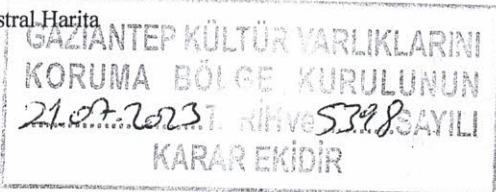 stral Harita
GAZİANTEP KÜLTÜR VARLIKLARINI
KORUMA BÖLGE KURULUNUN
21.07.2023 T. RİH ve 5398 SAYILI
KARAR EKİDİR